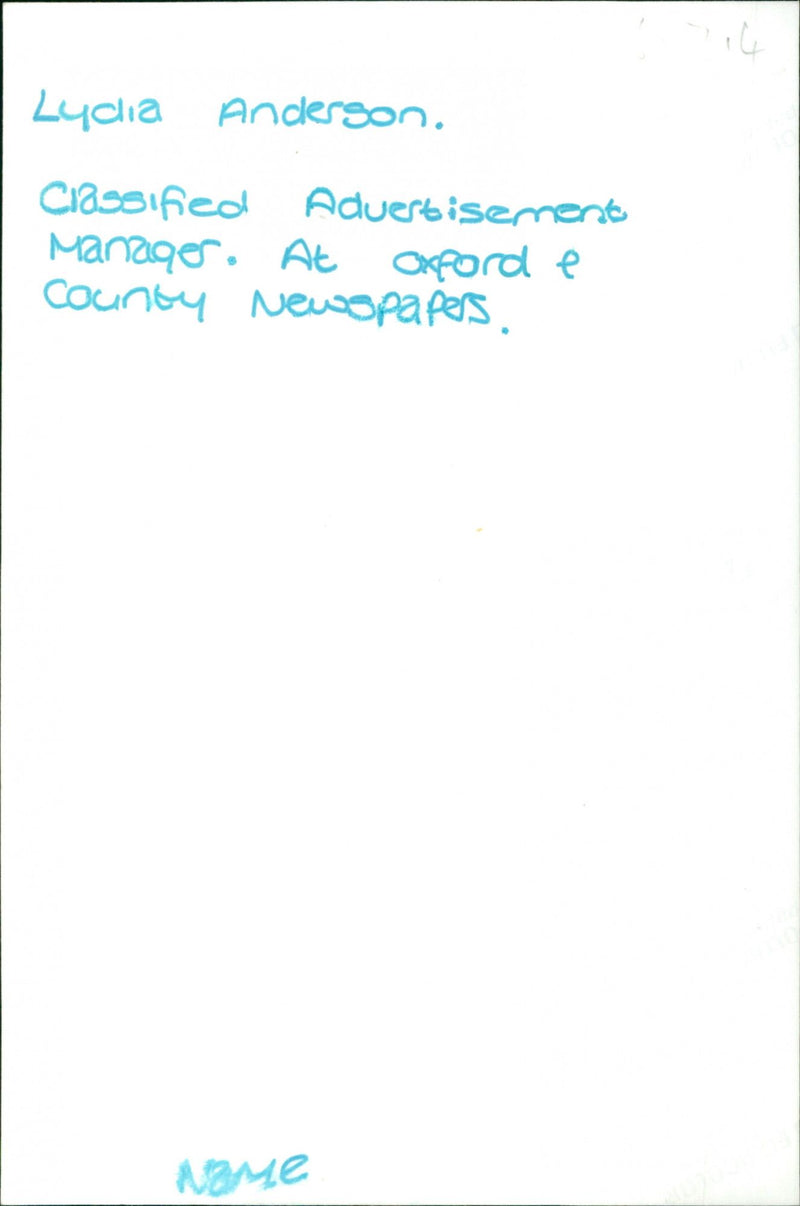 Lydia Anderson.
Classified Advertisement
Manager. At Oxford &
County Newspapers.
Name